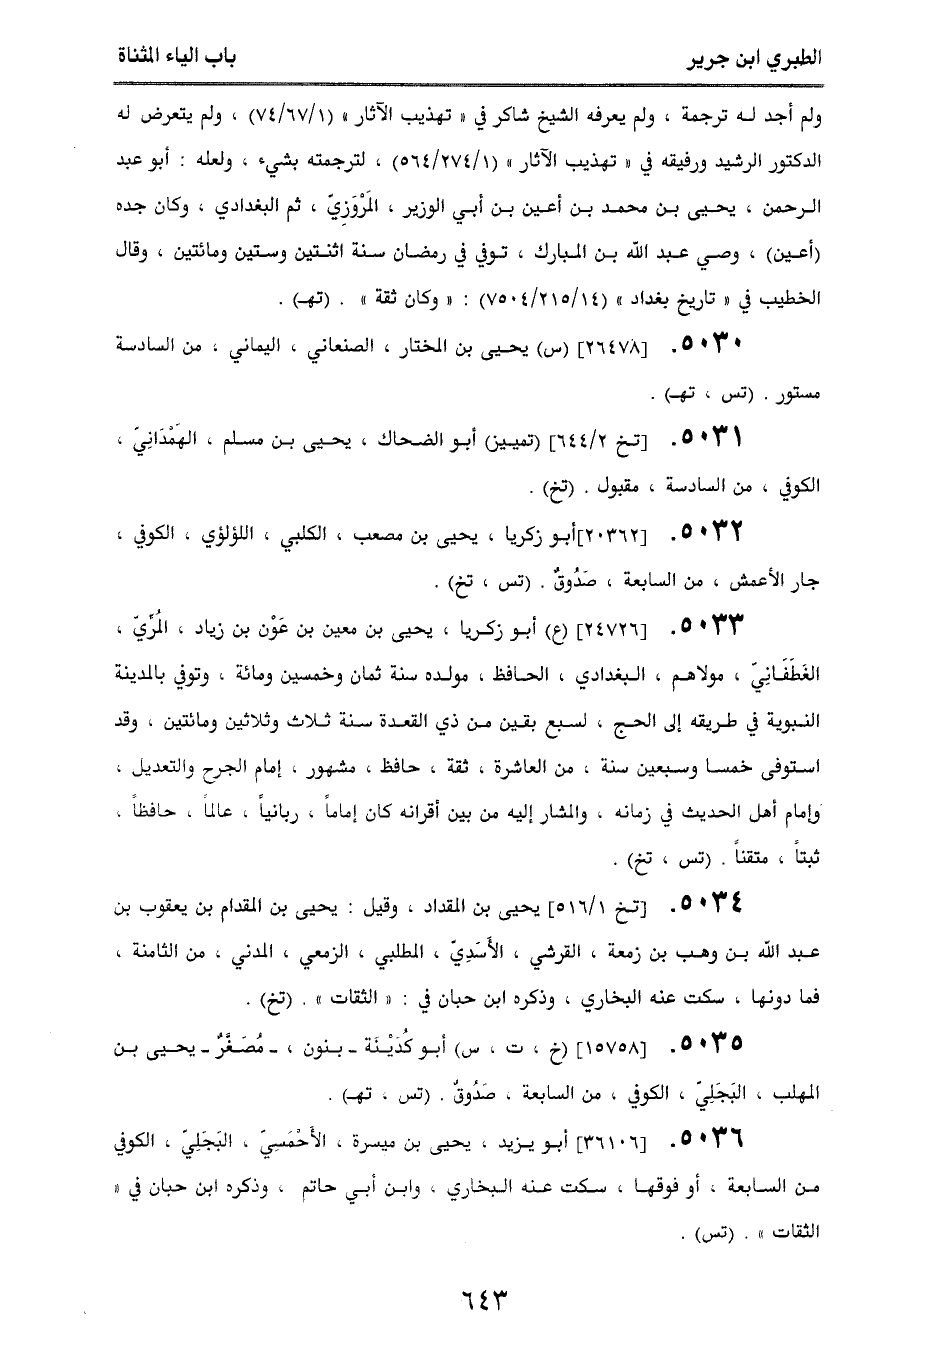 الطبري ابن جرير
باب الياء المثناة
ولم أجد له ترجمة ، ولم يعرفه الشيخ شاكر في « تهذيب الآثار » (٧٤/٦٧/١) ، ولم يتعرض له
الدكتور الرشيد ورفيقه في « تهذيب الآثار » (٥٦٤/٢٧٤/١) ، لترجمته بشيء ، ولعله : أبو عبد
الرحمن ، يحيى بن محمد بن أعين بن أبي الوزير ، المَرْوَزِيّ ، ثم البغدادي ، وكان جده
(أعين) ، وصي عبد الله بن المبارك ، توفي في رمضان سنة اثنتين وستين ومائتين ، وقال
الخطيب في « تاريخ بغداد » (٧٥٠٤/٢١٥/١٤) : « وكان ثقة » . (تهـ) .
٥٠٣٠. [٢٦٤٧٨] (س) يحيى بن المختار ، الصنعاني ، اليماني ، من السادسة
مستور . (تس ، تهـ) .
٥٠٣١. [تخ ٦٤٤/٢] (تمييز) أبو الضحاك ، يحيى بن مسلم ، الهَمْدَانِيّ ،
الكوفي ، من السادسة ، مقبول . (تخ) .
٥٠٣٢. [٢٠٣٦٢]أبو زكريا ، يحيى بن مصعب ، الكلبي ، اللؤلؤي ، الكوفي ،
جار الأعمش ، من السابعة ، صَدُوقٌ . (تس ، تخ) .
٥٠٣٣. [٢٤٧٢٦] (ع) أبو زكريا ، يحيى بن معين بن عَوْن بن زياد ، المُرِّيّ ،
الغَطَفَانِيّ ، مولاهم ، البغدادي ، الحافظ ، مولده سنة ثمان وخمسين ومائة ، وتوفي بالمدينة
النبوية في طريقه إلى الحج ، لسبع بقين من ذي القعدة سنة ثلاث وثلاثين ومائتين ، وقد
استوفى خمسا وسبعين سنة ، من العاشرة ، ثقة ، حافظ ، مشهور ، إمام الجرح والتعديل ،
وإمام أهل الحديث في زمانه ، والمشار إليه من بين أقرانه كان إماماً ، ربانياً ، عالماً ، حافظاً ،
ثبتاً ، متقناً . (تس ، تخ) .
٥٠٣٤. [تخ ٥١٦/١] يحيى بن المقداد ، وقيل : يحيى بن المقدام بن يعقوب بن
عبد الله بن وهب بن زمعة ، القرشي ، الأَسَدِيّ ، المطلبي ، الزمعي ، المدني ، من الثامنة ،
فما دونها ، سكت عنه البخاري ، وذكره ابن حبان في : « الثقات » . (تخ) .
٥٠٣٥. [١٥٧٥٨] (خ ، ت ، س) أبو كُدَيْنَة ـ بنون ، ـ مُصَغَّرٌ ـ يحيى بن
المهلب ، البَجَلِيّ ، الكوفي ، من السابعة ، صَدُوقٌ . (تس ، تهـ) .
٥٠٣٦. [٣٦١٠٦] أبو يزيد ، يحيى بن ميسرة ، الأَحْمَسِيّ ، البَجَلِيّ ، الكوفي
من السابعة ، أو فوقها ، سكت عنه البخاري ، وابن أبي حاتم ، وذكره ابن حبان في «
الثقات » . (تس) .
٦٤٣